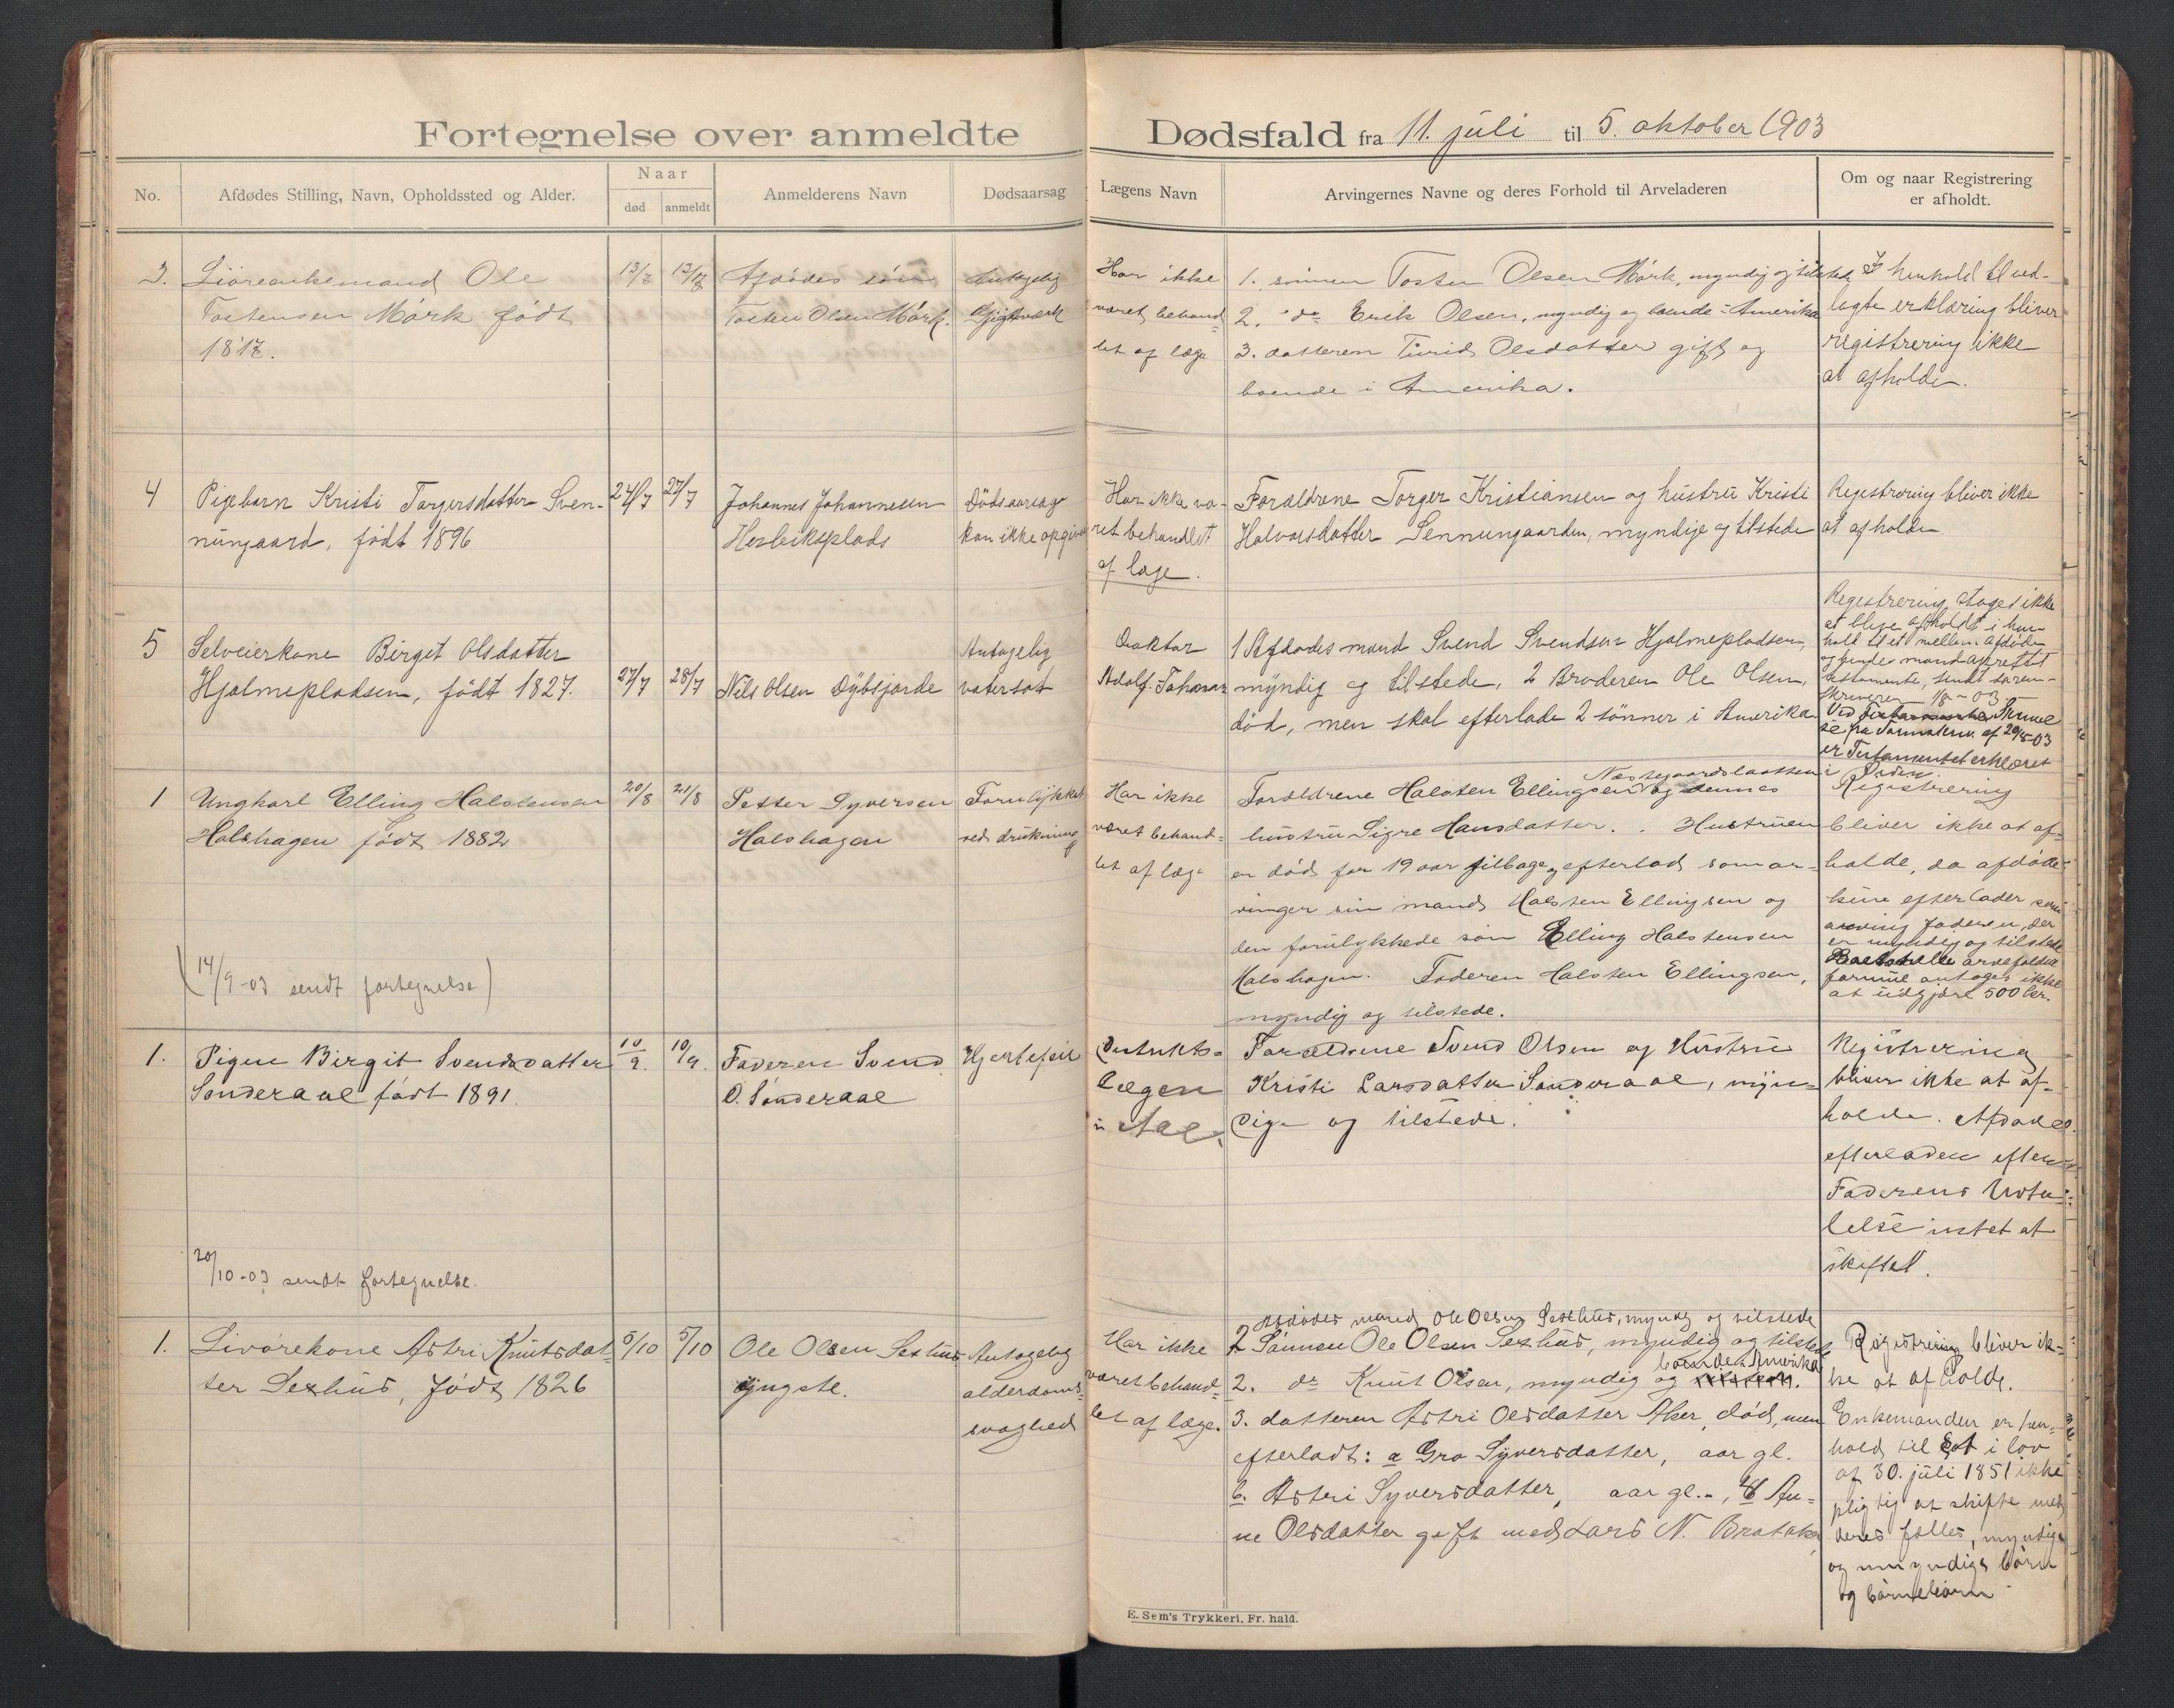 Fortegnelse over anmeldte Dødsfald fra 11. juli til 5. oktober 1903
No.
Afdødes Stilling, Navn, Opholdssted og Alder.
Naar
død
anmeldt
Anmelderens Navn
Dødsaarsag
Lægens Navn
Arvingernes Navne og deres Forhold til Arveladeren
Om og naar Registrering
er afholdt.
3.
Ole
Tostensen Mørk født
1817.
13/7
13/7
Afdødes søn
Tosten Olsen Mørk.
Antagelig
Gigtværk
Har ikke
været behand-
let af læge
1. sønnen Tosten Olsen Mørk, myndig og tilstede
2. do Erik Olsen, myndig og boende i Amerika
3. datteren Turid Olsdatter gift og
boende i Amerika.
I henhold til ved-
lagte erklæring bliver
registrering ikke
at afholde.
4
Pigebarn Kristi Torgersdatter Sven-
nungaard, født 1896
24/7
27/7
Johannes Johannesen
Herleiksplads
Dødsaarsag
kan ikke opgives
Har ikke væ-
ret behandlet
af læge.
Forældrene Torger Kristiansen og hustru Kristi
Halvorsdatter Sennungaarden, myndige og tilstede
Registrering bliver ikke
at afholde
5
Selveierkone Birgit Olsdatter
Hjælmepladsen, født 1827.
27/7
28/7
Nils Olsen Dybsjorde
Antagelig
vatersot
Doktor
Adolf
1 Afdødes mand Svend Svendsen Hjælmepladsen,
myndig og tilstede, 2 Broderen Ole Olsen,
død, men skal efterlade 2 sønner i Amerika
Registrering antages ikke
at blive afholdt i hen-
hold til et mellem afdøde
og hendes mand oprettet
testamente, sendt soren-
skriveren 1/8-03
se fra Sorenskriv. af 20/8-03
er Testamentet erklæret
i Orden
1
Ungkarl Elling Halstensen
Halshagen født 1882
20/8
21/8
Petter Syversen
Halshagen
Forulykket
ved drukning
Har ikke
været behand-
let af læge
Næstegaardslaatten
Forældrene Halsten Ellingsen og dennes
hustru Sigre Hansdatter. Hustruen
er død for 19 aar tilbage, efterlod som ar-
vinger sin mand Halsten Ellingsen og
den forulykkede søn Elling Halstensen
Halshagen. Faderen Halsten Ellingsen,
myndig og tilstede.
Registrering
bliver ikke at af-
holde, da afdøde
kun efterlader som
arving faderen, der
er myndig og tilstede
arvefaldne
formue antages ikke
at udgjøre 500 kr.
(14/9-03 sendt fortegnelse)
1.
Pigen Birgit Svendsdatter
Sønderaal født 1891.
10/9.
10/9.
Faderen Svend
O. Sønderaal
Hjertefeil
Distrikts-
lægen
i Aal.
Forældrene Svend Olsen og Hustru
Kristi Larsdatter Sønderaal, myn-
dige og tilstede.
Registrering
bliver ikke at af-
holde. Afdøde
efterlader efter
Faderens Udta-
lelse intet at
skifte.
20/10-03 sendt fortegnelse.
1.
Livørekone Astri Knutsdat-
ter Sexhus, født 1826
5/10
5/10
Ole Olsen Sexhus
yngste.
Antagelig
alderdoms-
svaghed
Har ikke
været behand-
let af læge.
Afdødes mand Ole Olsen Sexhus, myndig og tilstede
Sønnen Ole Olsen Sexhus, myndig og tilstede
boende i Amerika
2. do Knut Olsen, myndig og
3. datteren Astri Olsdatter Aker, død, men
efterladt: a Gro Syversdatter, aar gl.
b. Astri Syversdatter, aar gl., 4 An-
ne Olsdatter gift med Lars N.
Registrering bliver ik-
ke at afholde.
Enkemanden er hen-
hold til i lov
af 30. juli 1851 ikke
pligtig at skifte med
deres fælles, myndige
og umyndige børn
og børnebørn
E. Sem's Trykkeri, Fr. hald.